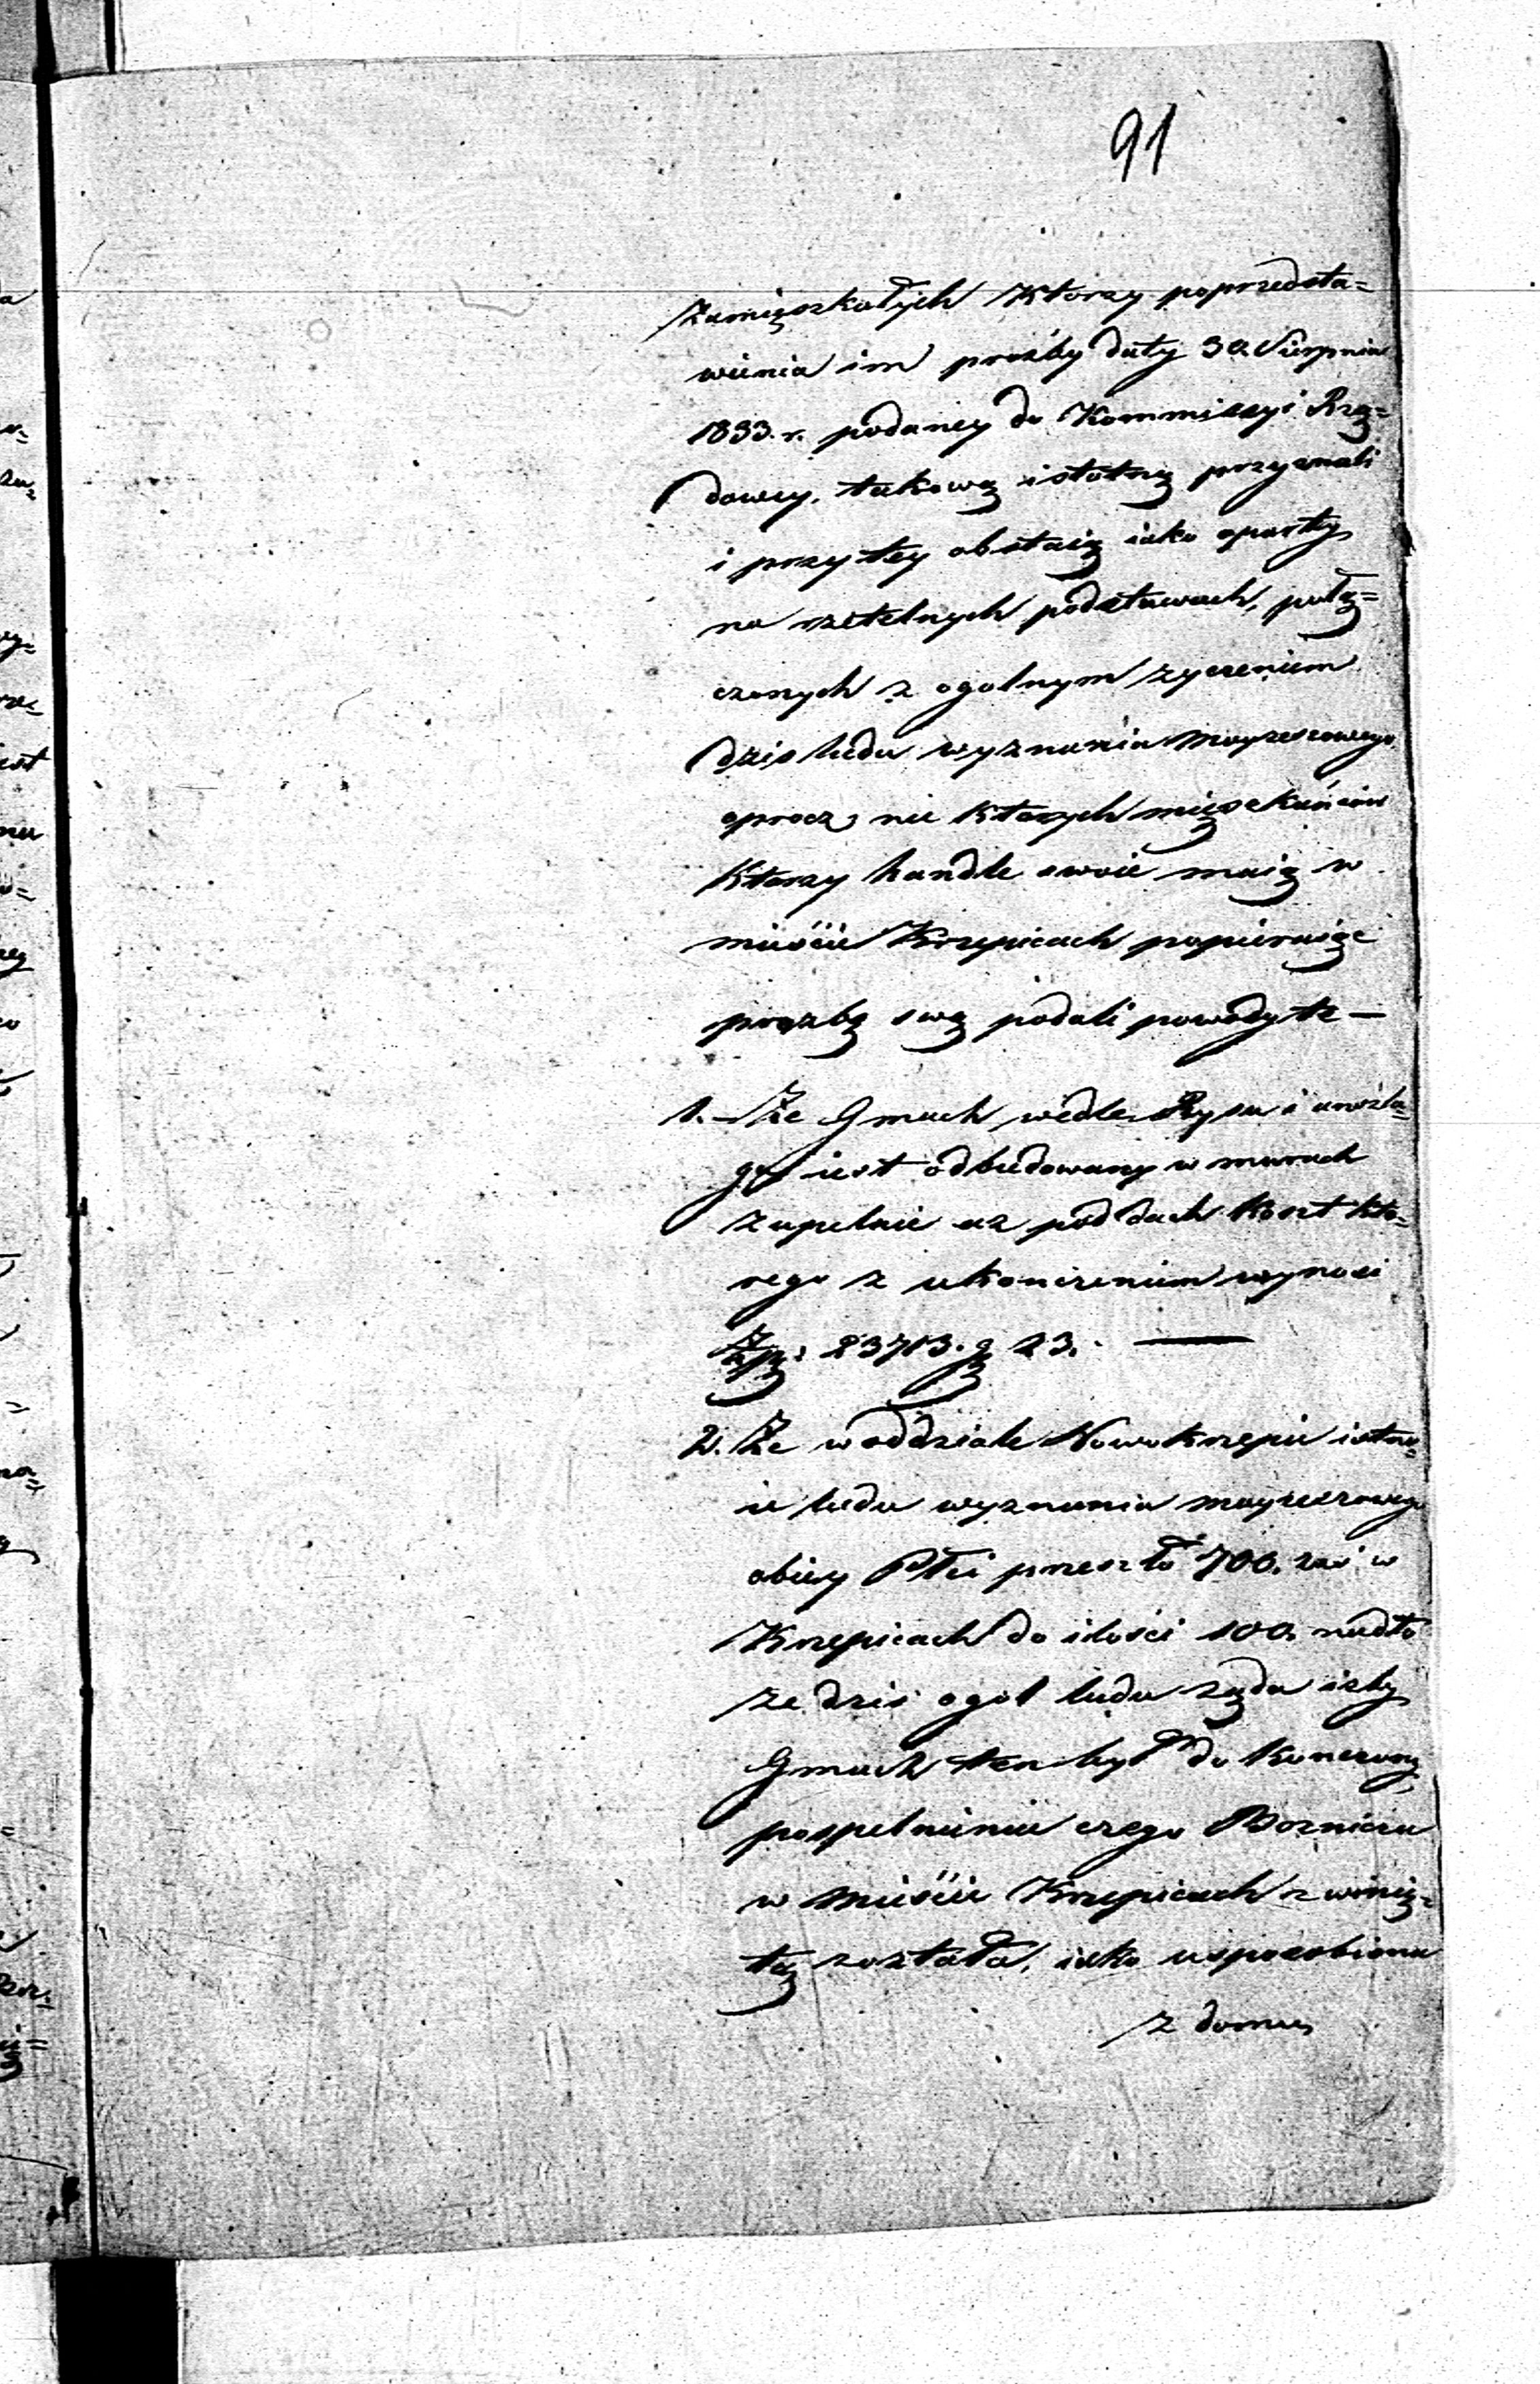 91
Zamięszkałych Ktorzy poprzedsta=
wienia im proźby daty 30 Sierpnia
1833. r. podaney do Kommissyi Rzą=
dowey, takową istotną przyznali
i przytey obstaią iako oparty
na rzetelnych podstawach, połą=
czonych z ogolnym zyczeniem
dziś ludu wyznania mayzeszowego
oprocz nie ktorych mięszkańców
Ktorzy handle swoie maią w
mieście Krzepicach popieraiąc
prozbę swą podali powody te —
1. Że Gmach wedle Rysu i
go iest odbudowany w murach
zupełnie az pod dach koszt któ=
rego z ukonczeniem wynosi
Złp: 23713. g 23. —
2. Że w oddziale Nowokrzepic istnie=
ie ludu wyznania mayzeszowego
obiey Płci przeszło 700. zaś w
Krzepicach do ilości 100. nadto
ze dziś ogół ludu ząda izby
Gmach ten był do konczony,
po spełnieniu czego Boznica
w mieście Krzepicach zwinię=
tą została, iako usposobiona
z domu